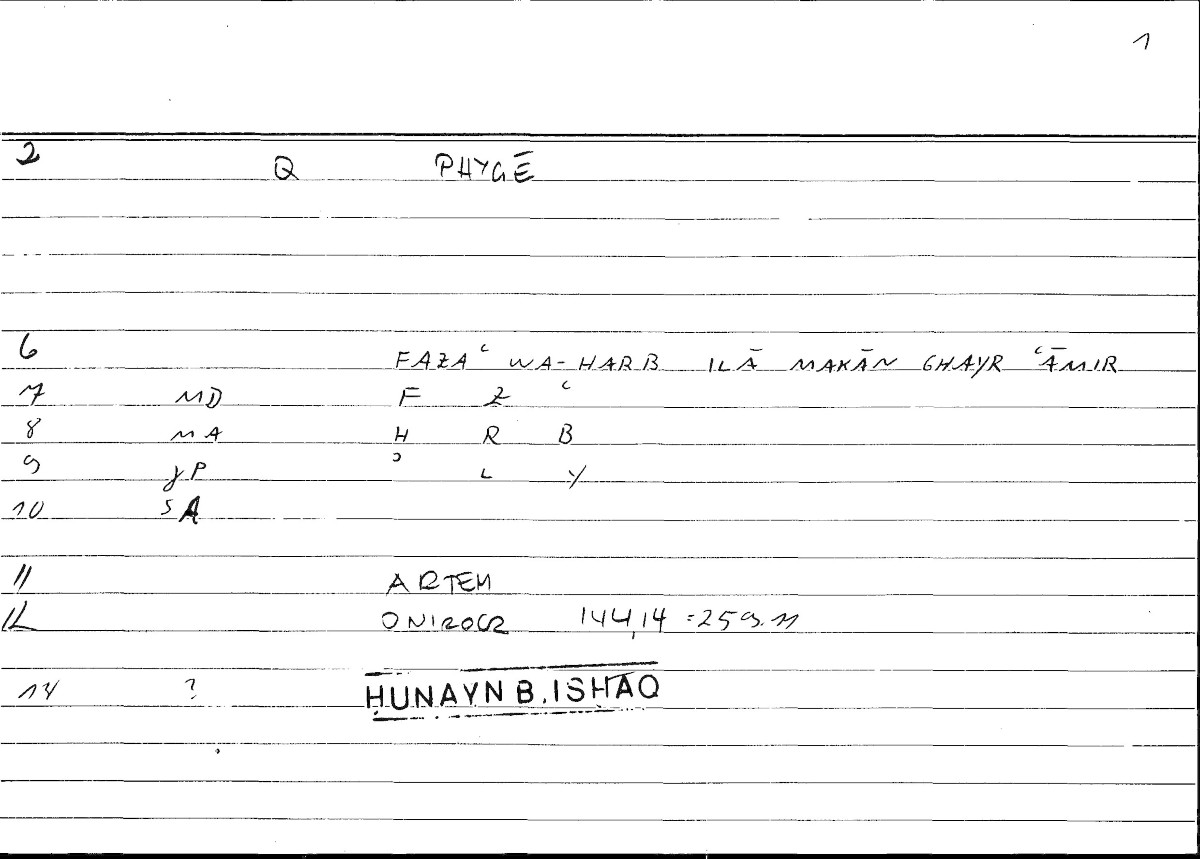 1
2 Q PHYGĒ
6 FAZAʿ WA-HARB ILĀ MAKĀN GHAYR ʿĀMIR
7 MD F Z ʿ
8 MA H R B
9 γP ʾ L Y
10 SA
11 ARTEM
12 ONIROCR 144,14 = 259.11
14 ? ḤUNAYN B. ISHAQ